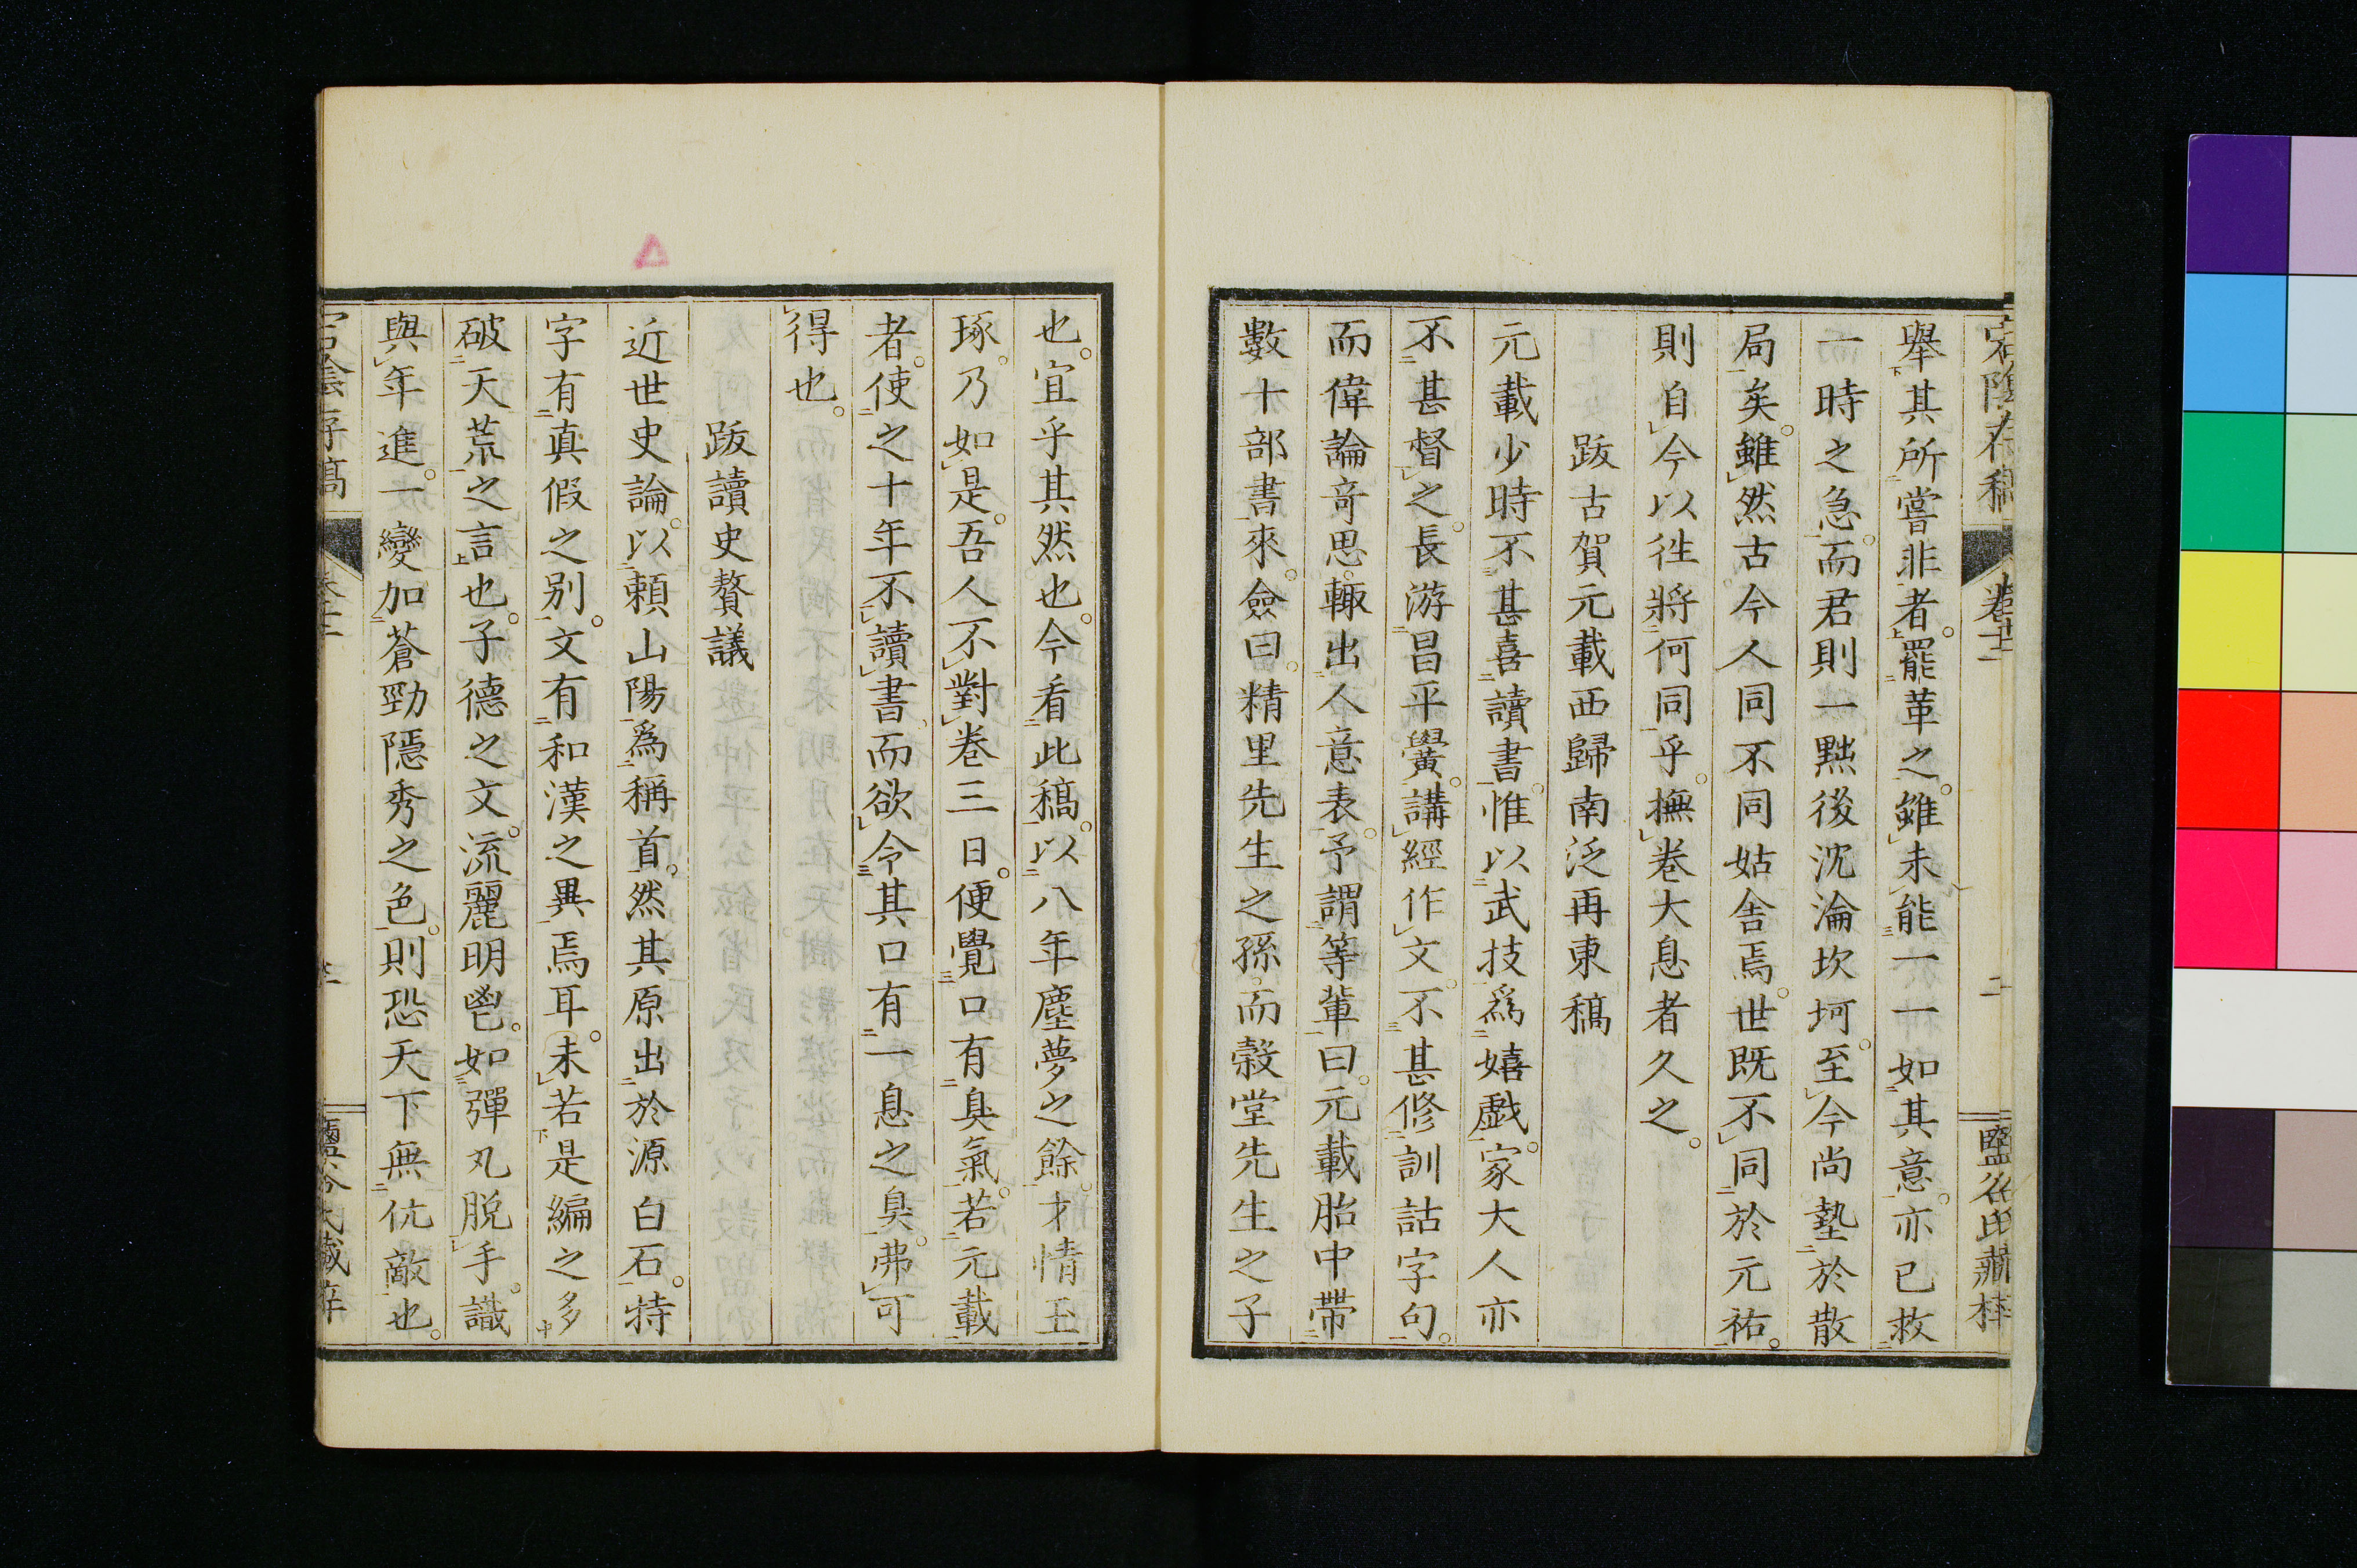 宕陰存稿 卷十二 二 鹽谷氏藏梓
舉其所嘗非者。罷革之。雖未能一一如其意。亦已救
一時之急。而君則一黜後沈淪坎坷。至今尚蟄於散
局矣。雖然古今人同不同姑舍焉。世既不同於元祐。
則自今以徃將何同乎。撫卷大息者久之。
跋古賀元載西歸南泛再東稿
元載少時不甚喜讀書。惟以武技爲嬉戲。家大人亦
不甚督之。長游昌平黌。講經作文。不甚修訓詁字句。
而偉論奇思。輙出人意表。予謂等輩曰。元載胎中帶
數十部書來。僉曰。精里先生之孫。而榖堂先生之子
也。宜乎其然也。今看此稿。以八年塵夢之餘。才情玉
琢。乃如是。吾人不對卷三日。便覺口有臭氣。若元載
者。使之十年不讀書而欲令其口有一息之臭。弗可
得也。
跋讀史贅議
近世史論。以賴山陽爲稱首。然其原出於源白石。特
字有真假之别。文有和漢之異焉耳。未若是編之多
破天荒之言也。子德之文。流麗明鬯。如彈丸脱手。識
與年進。一變加蒼勁隱秀之色。則恐天下無伉敵也。
宕陰存稿 鹽谷氏藏梓